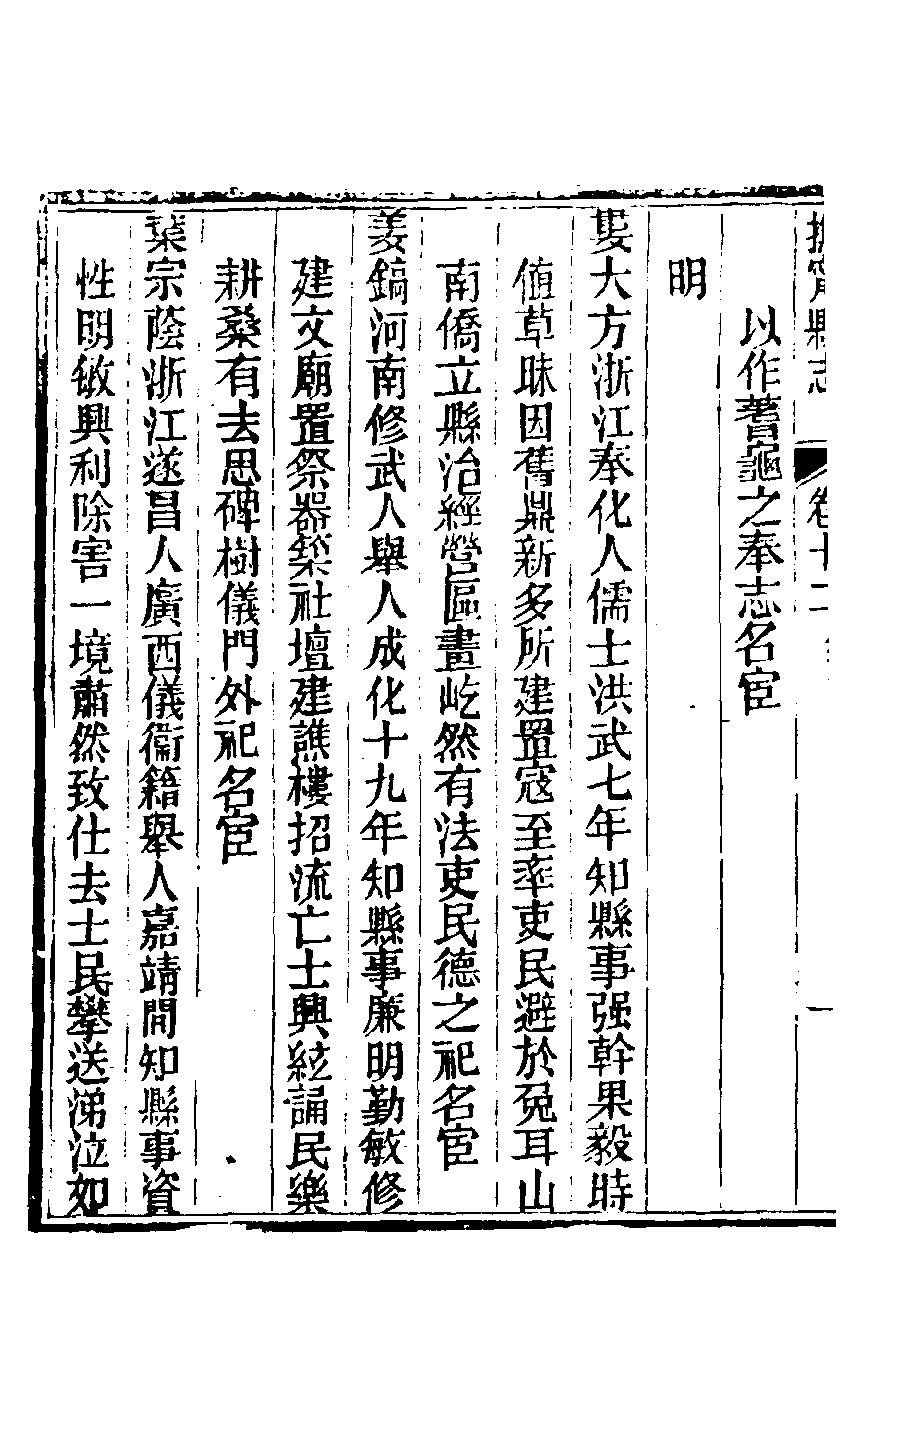 撫甯縣志 卷十二
以作蓍龜之奉志名宦
明
婁大方浙江奉化人儒士洪武七年知縣事强幹果毅時
値草昧因舊鼎新多所建置寇至率吏民避於兔耳山
南僑立縣治經營區畫屹然有法吏民德之祀名宦
姜鎬河南修武人舉人成化十九年知縣事廉明勤敏修
建文廟置祭器築社壇建譙樓招流亡士興絃誦民樂
耕桑有去思碑樹儀門外祀名宦
葉宗蔭浙江遂昌人廣西儀衞籍舉人嘉靖間知縣事資
性明敏興利除害一境肅然致仕去士民攀送涕泣如